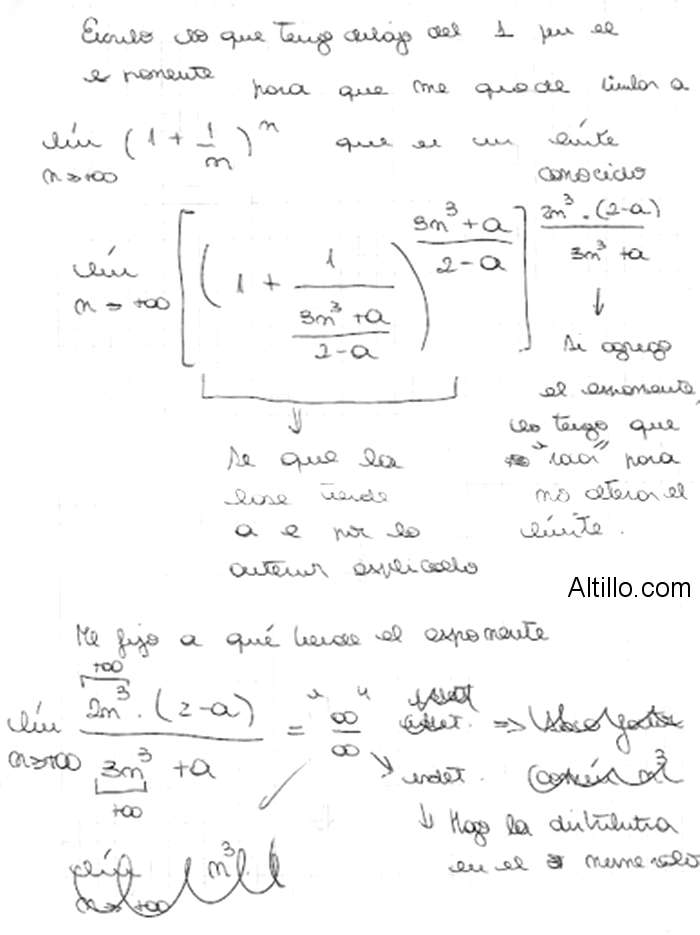 Escribo lo que tengo debajo del 1 en el
exponente para que me quede similar a
lím (1 + 1/n)^n que es un límite
n→+∞ conocido
lím [(1 + 1/((3n³+a)/(2-a)))^((3n³+a)/(2-a))]^(2n³.(2-a)/(3n³+a))
n→+∞
Si agrego
el exponente,
lo tengo que
"sacar" para
no alterar el
límite.
Se que la
base tiende
a e por lo
anterior explicado
Altillo.com
Me fijo a qué tiende el exponente
+∞
lím 2n³.(2-a) / 3n³+a = "∞/∞" indet. ⇒
n→+∞
+∞
indet.
↓ Hago la distributiva
en el numerador
lím n³.
n→+∞